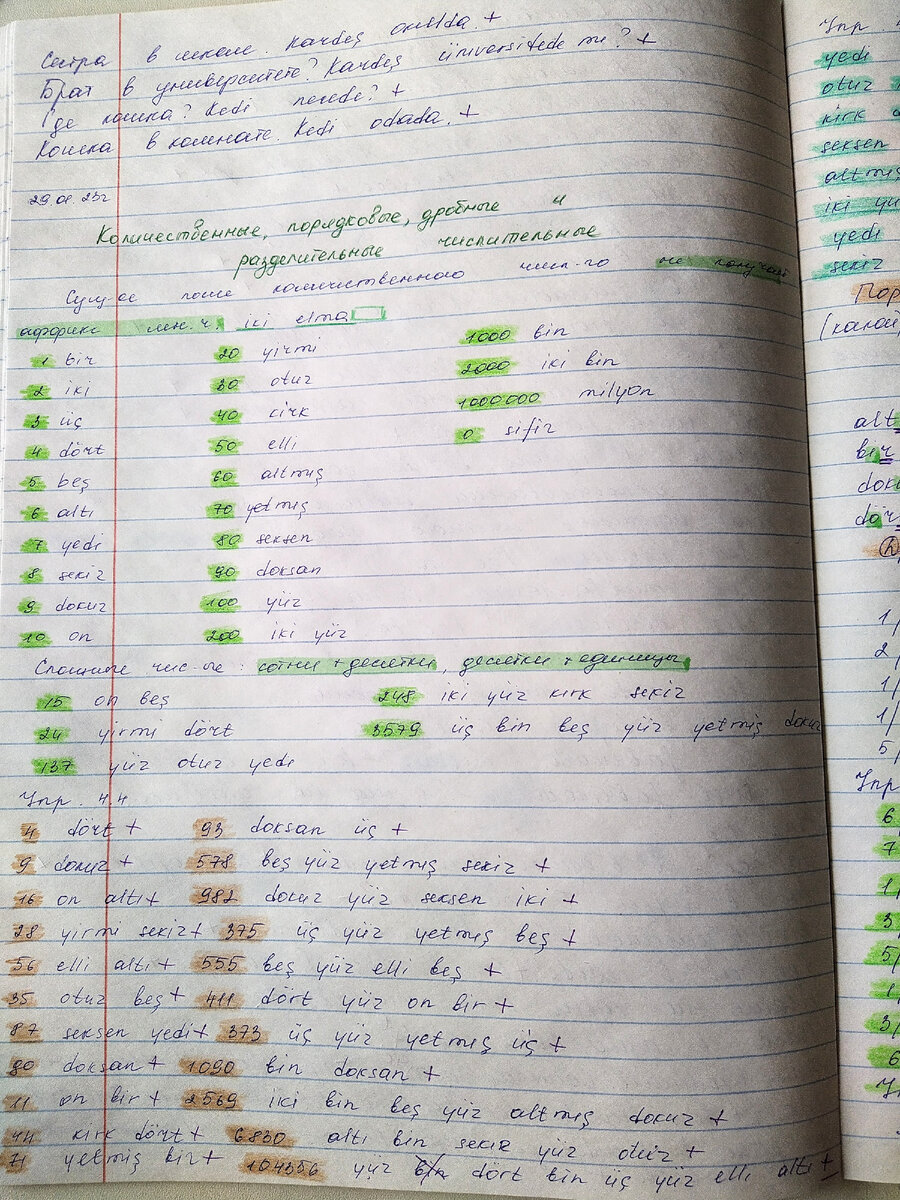 Сестра в школе. Kardeş okulda +
Брат в университете? Kardeş üniversitede mi? +
Где кошка? Kedi nerede? +
Кошка в комнате. Kedi odada. +
29.01.23г
Количественные, порядковые, дробные и
разделительные числительные
Сущ-ое после количественного числ-го не получает
аффикс мн.ч. iki elma
1 bir 20 yirmi 1000 bin
2 iki 30 otuz 2000 iki bin
3 üç 40 kirk 1000000 milyon
4 dört 50 elli 0 sifir
5 beş 60 altmış
6 altı 70 yetmiş
7 yedi 80 seksen
8 sekiz 90 doksan
9 dokuz 100 yüz
10 on 200 iki yüz
Сложные чис-ые: сотни + десятки, десятки + единицы
15 on beş 248 iki yüz kirk sekiz
24 yirmi dört 3579 üç bin beş yüz yetmiş dokuz
137 yüz otuz yedi
Упр. 4.4
4 dört + 93 doksan üç +
9 dokuz + 578 beş yüz yetmiş sekiz +
16 on altı + 982 dokuz yüz seksen iki +
28 yirmi sekiz + 375 üç yüz yetmiş beş +
56 elli altı + 555 beş yüz elli beş +
35 otuz beş + 411 dört yüz on bir +
87 seksen yedi + 373 üç yüz yetmiş üç +
90 doksan + 1090 bin doksan +
11 on bir + 2569 iki bin beş yüz altmış dokuz +
44 kirk dört + 6830 altı bin sekiz yüz otuz +
71 yetmiş bir + 104356 yüz bin dört bin üç yüz elli altı +
Упр.
yedi
otuz
kirk
seksen
altmış
iki yü
yedi
sekiz
Пор
alt
bir
doku
dör
1/
2/
1/
1/
5/
Упр
6
7
1/
3/
5/
1/
3/
6